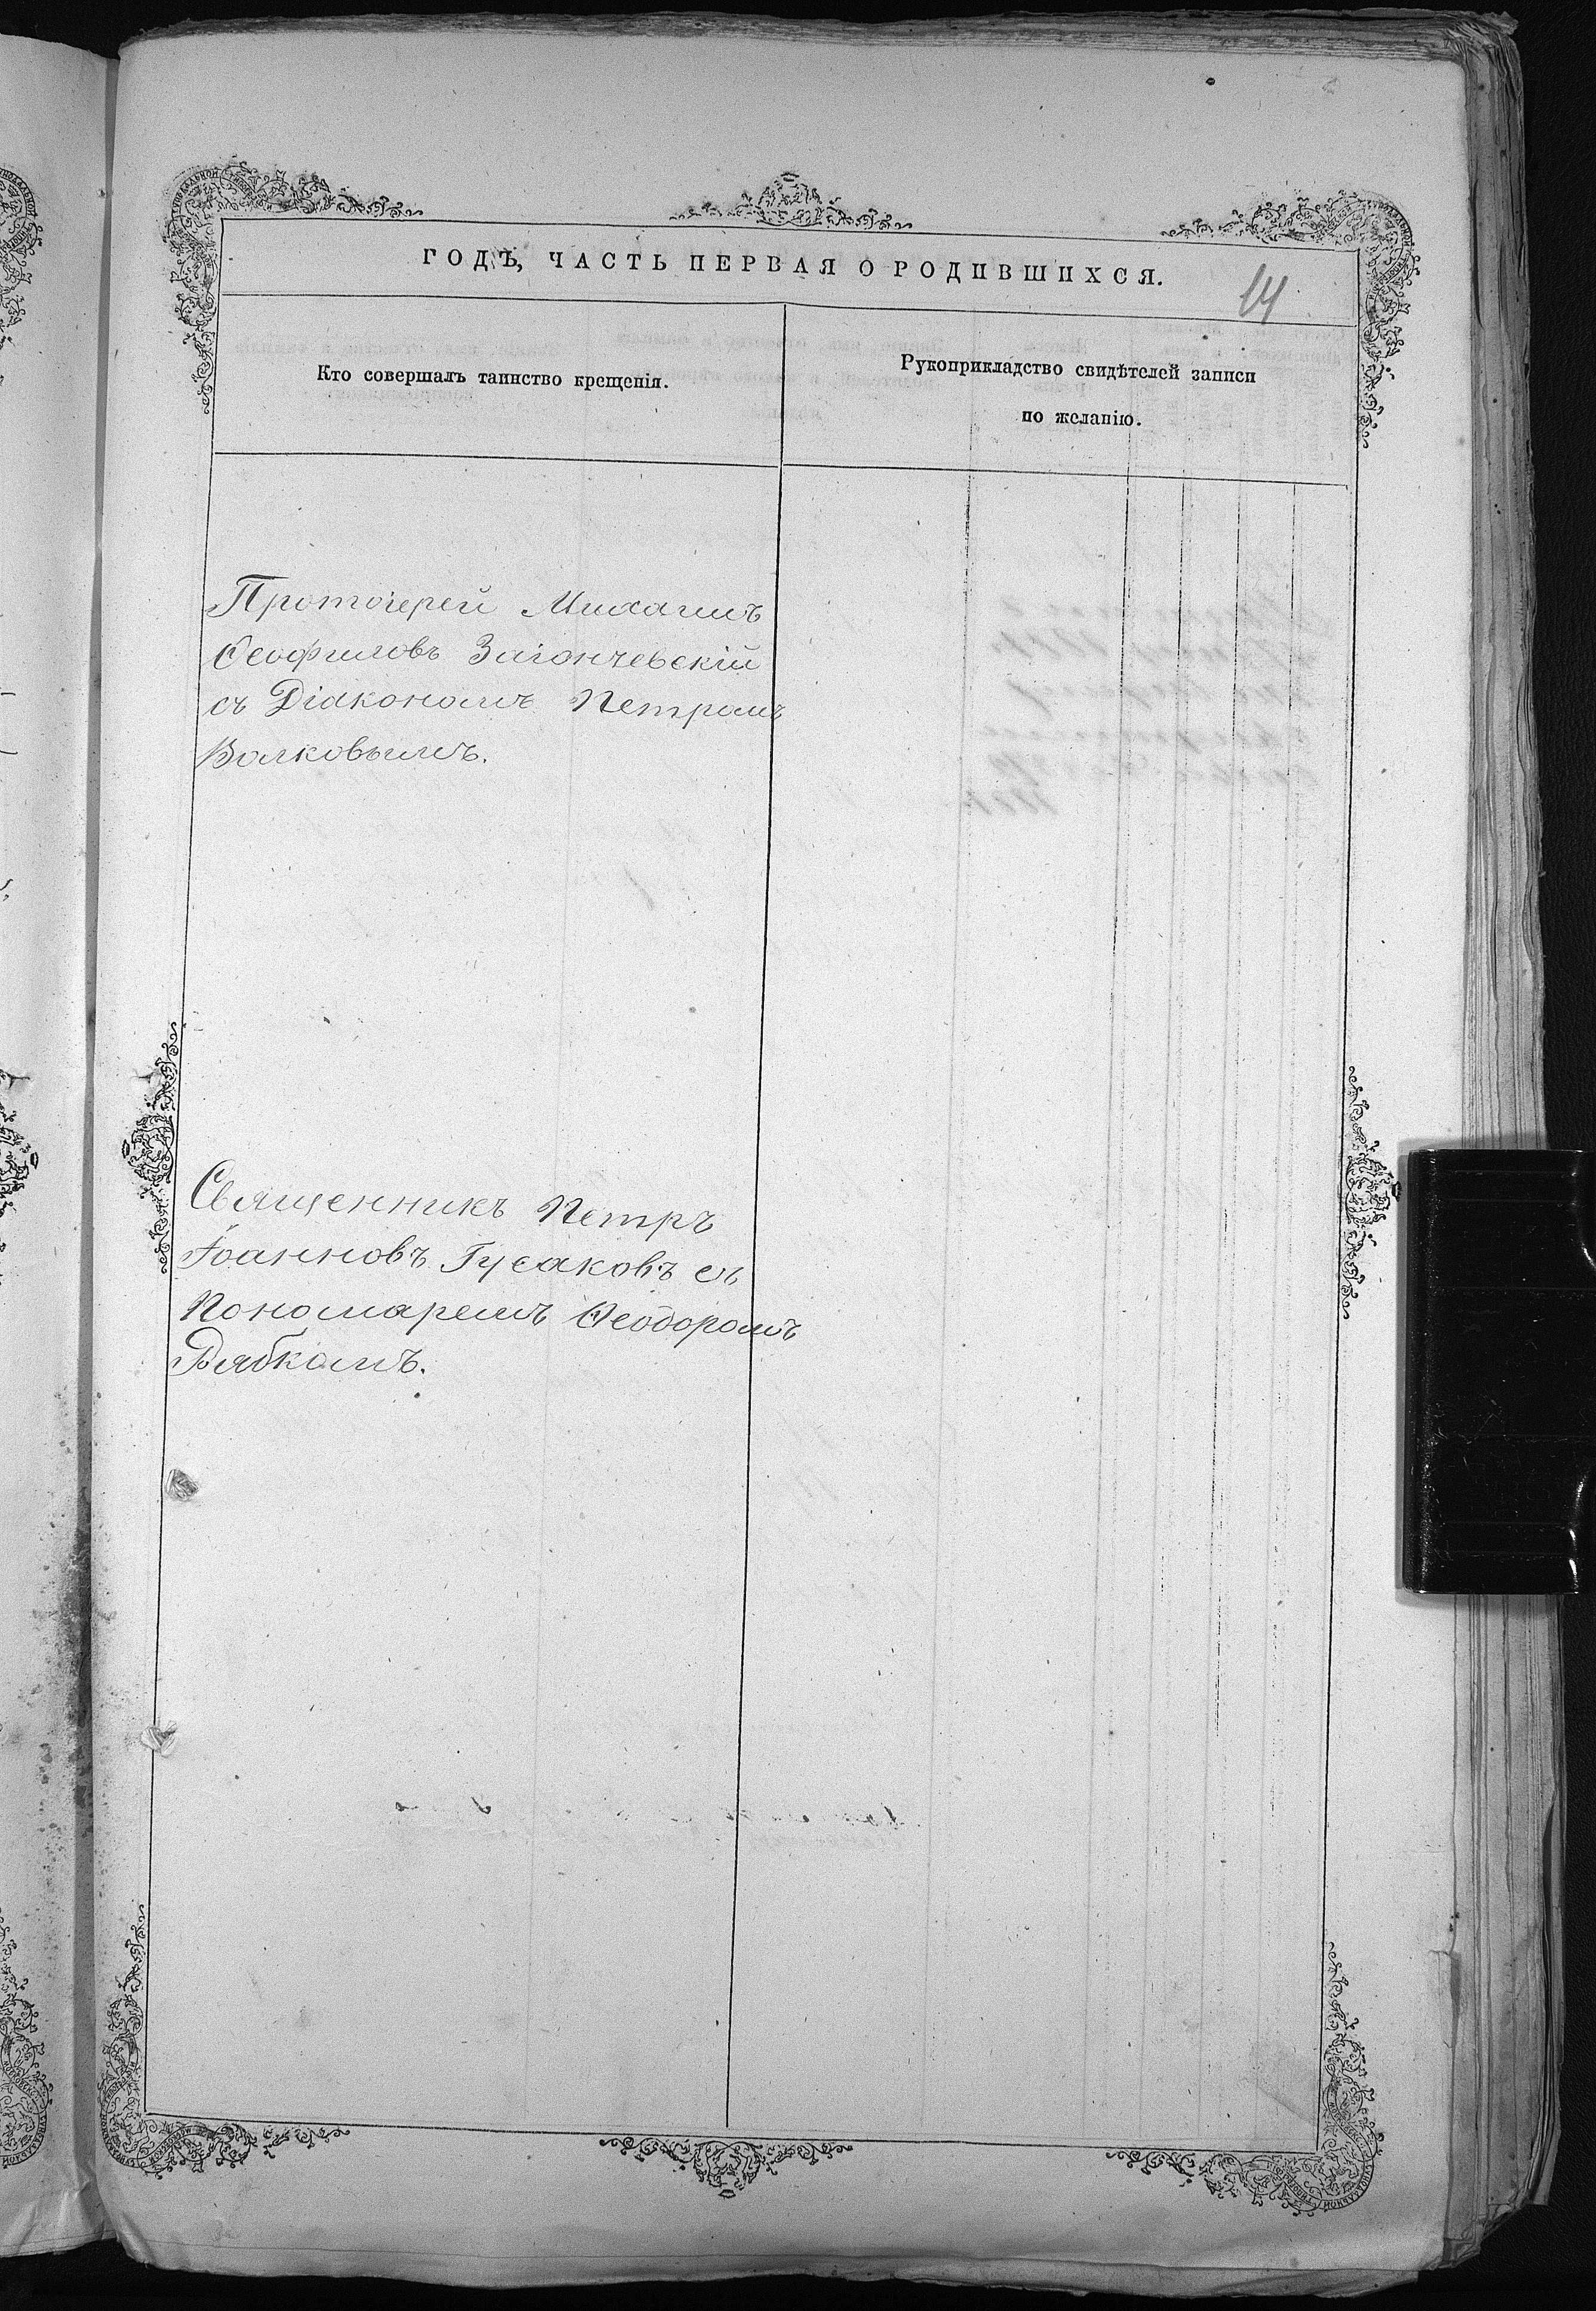 ГОДЪ, ЧАСТЬ ПЕРВАЯ О РОДИВШИХСЯ.
14
Кто совершалъ таинство крещенія.
Рукоприкладство свидѣтелей записи
по желанію.
Протоіерей Михаилъ
Ѳеофиловъ Заіончевскій
съ Діакономъ Петромъ
Волковымъ.
Священникъ Петръ
Іоанновъ Гусаковъ съ
Пономаремъ Ѳеодоромъ
Рябкомъ.